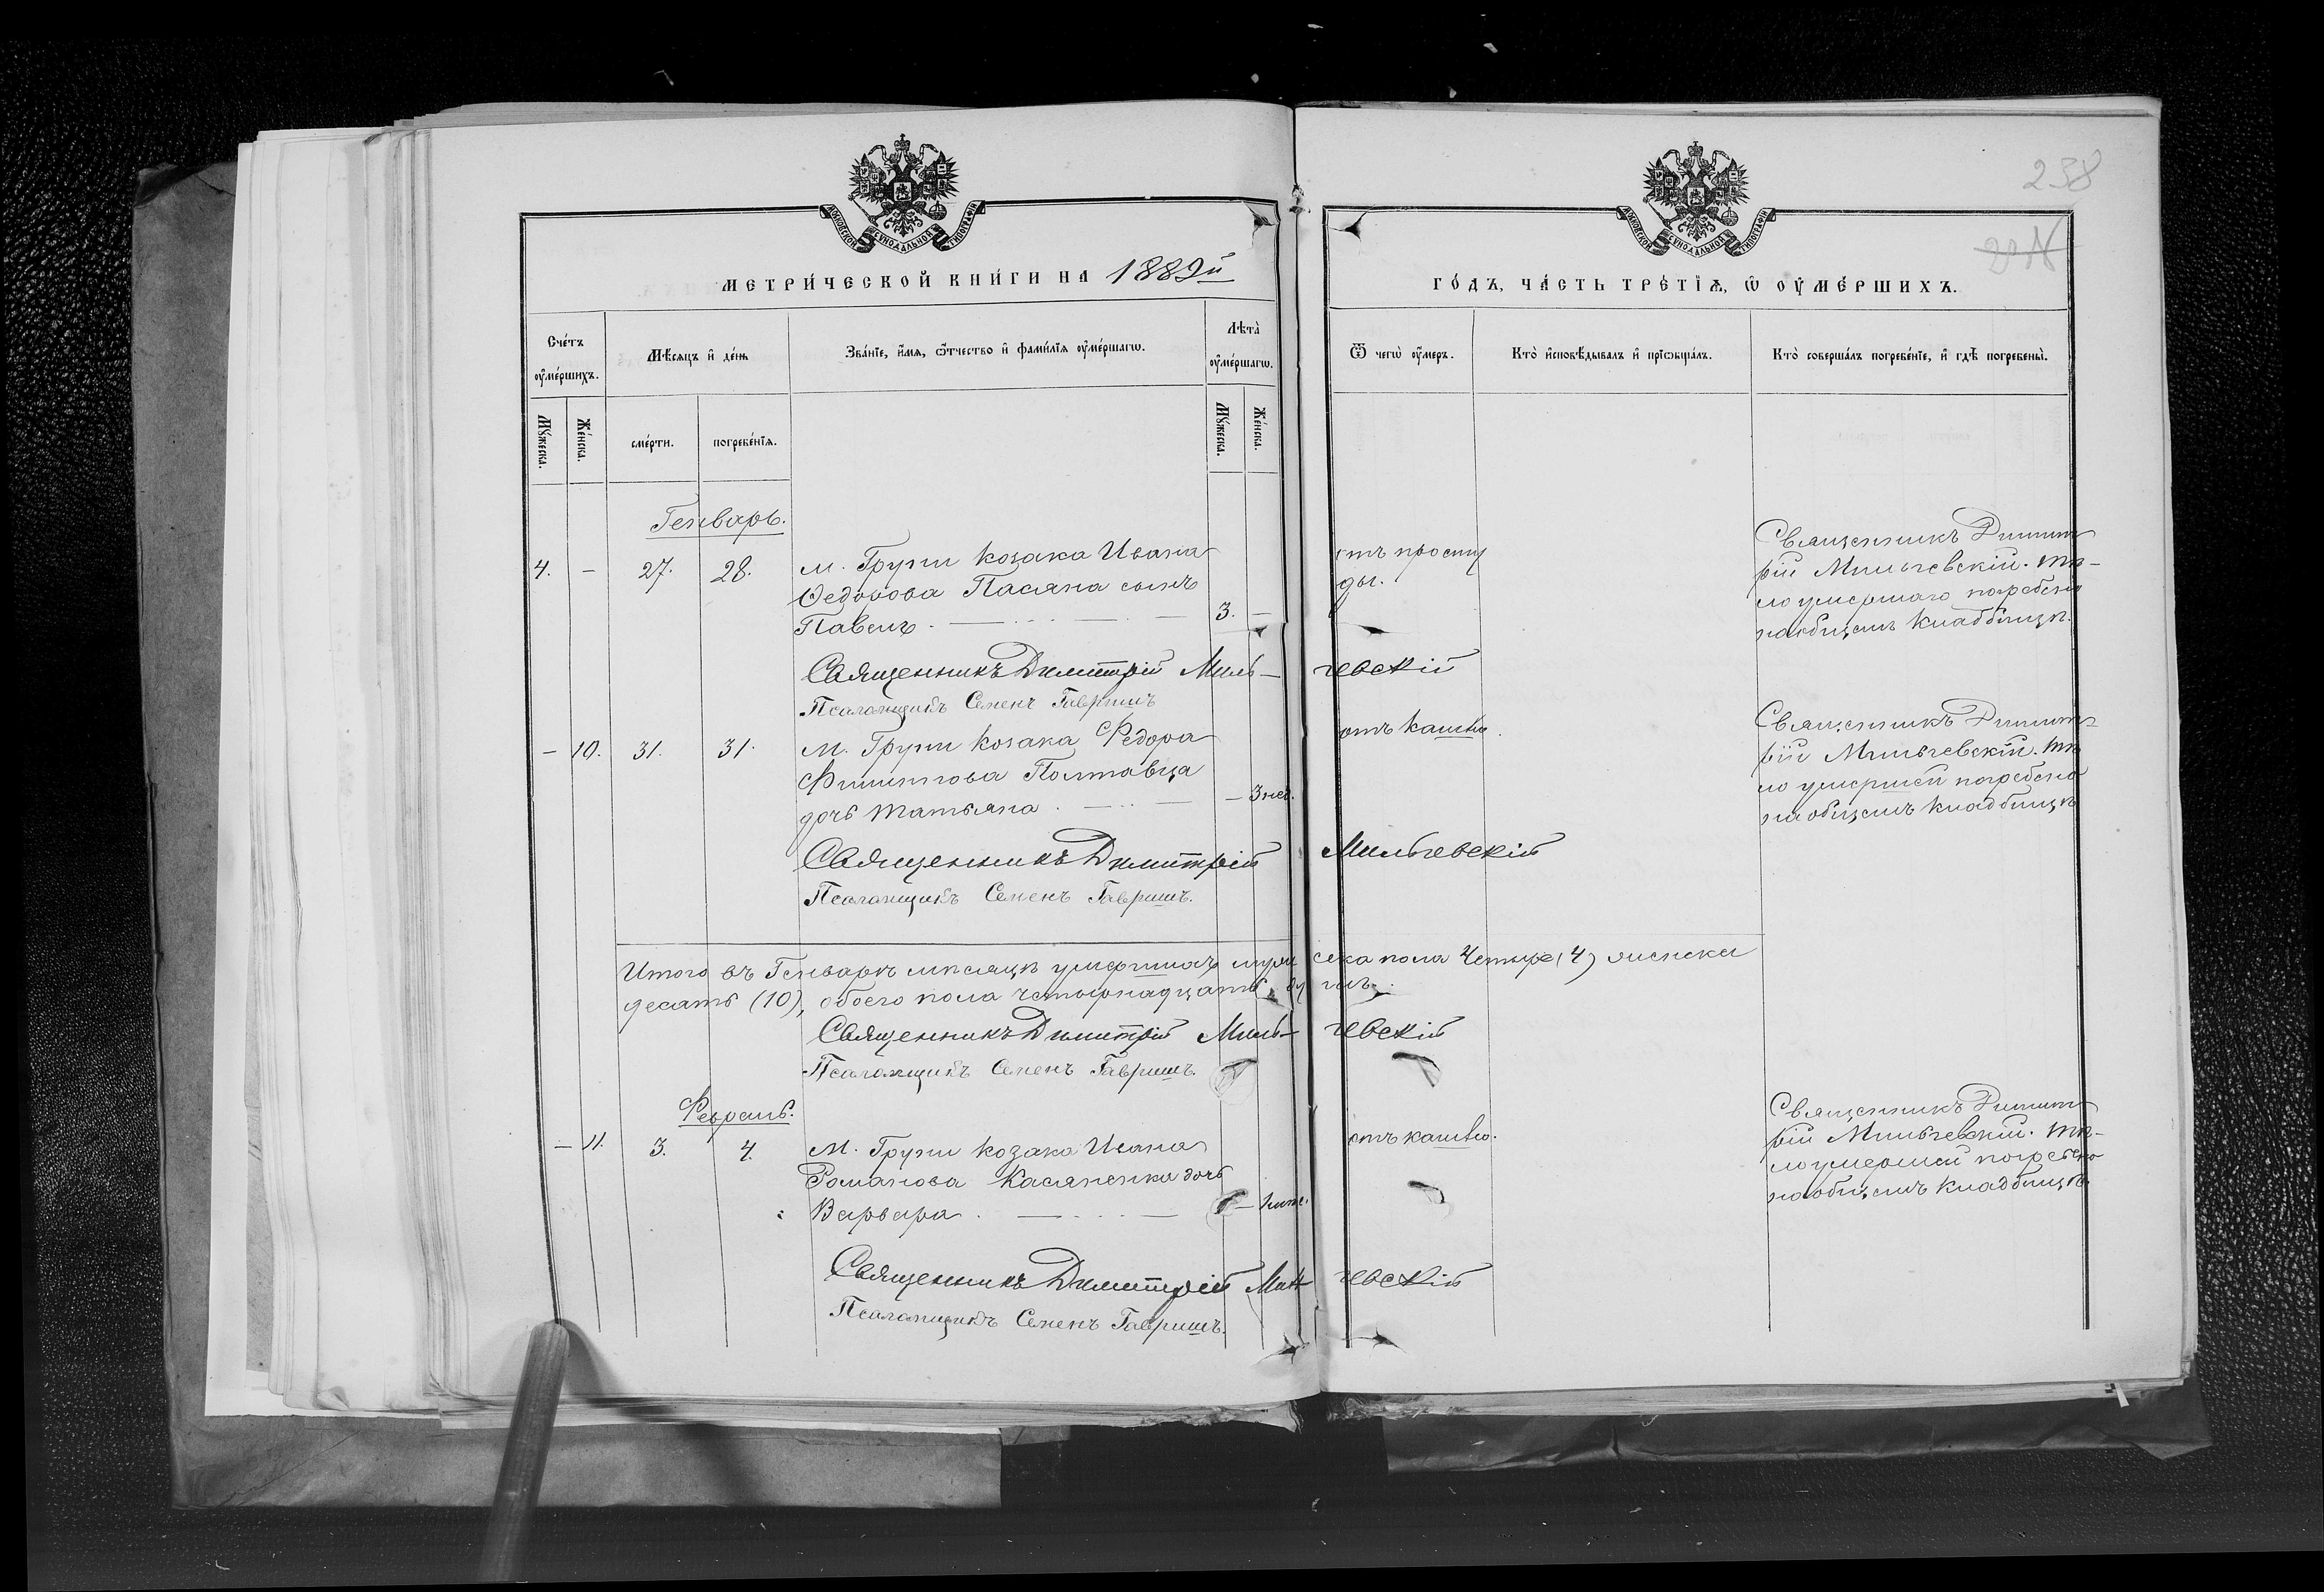 238
МОСКОВСКОЙ СѴНОДАЛЬНОЙ ТИПОГРАФІИ
МОСКОВСКОЙ СѴНОДАЛЬНОЙ ТИПОГРАФІИ
МЕТРИ́ЧЕСКОЙ КНИ́ГИ НА 1889й
ГО́ДЪ, ЧА́СТЬ ТРЕ́ТІѦ, Ѡ ОУ҆МЕ́РШИХЪ.
Сче́тъ оу҆ме́ршихъ.
Мѣ́сяцъ и҆ де́нь
Зва́нїе, и҆́мѧ, ѻ҆́тчество и҆ фами́лїѧ оу҆ме́ршагѡ.
Лѣ̀та оу҆ме́ршагѡ.
Ѿ чегѡ̀ оу҆́меръ.
Кто̀ и҆сповѣ́дывалъ и҆ прїѡбща́лъ.
Кто̀ соверша́лъ погребе́нїе, и҆ гдѣ̀ погребены̀.
Мꙋ́жеска.
Же́нска.
сме́рти.
погребе́нїѧ.
Мꙋ́жеска.
Же́нска.
Генварь.
4. — 27. 28. м. Груни козака Ивана
Ѳедорова Пасяна сынъ
Павелъ. 3. —
отъ просту
ды.
Священникъ Димит
рій Мильчевскій. тѣ-
ло умершаго погребено
на общемъ кладбищѣ.
Священникъ Димитрій Миль- чевскій
Псаломщикъ Семенъ Гавришъ
— 10. 31. 31. М. Груни козака Федора
Филиппова Полтавца
дочь Татьяна. — 3 нед.
отъ кашлю.
Священникъ Димит-
рій Мильчевскій. тѣ
ло умершей погребено
на общемъ кладбищѣ
Священникъ Димитрій Мильчевскій
Псаломщикъ Семенъ Гавришъ.
Итого въ Генварѣ мѣсяцѣ умершихъ муж еска пола Четыре (4) женска
десять (10), обоего пола четырнадцать душъ.
Священникъ Димитрій Миль- чевскій
Псаломщикъ Семенъ Гавришъ.
Февраль.
— 11. 3. 4. М. Груни козака Ивана
Романова Касяненка дочь
Варвара. —
отъ кашлю.
Священникъ Димит
рій Мильчевскій. тѣ-
ло умершей погребено
на общемъ кладбищѣ
Священникъ Димитрій Миль чевскій
Псаломщикъ Семенъ Гавришъ.